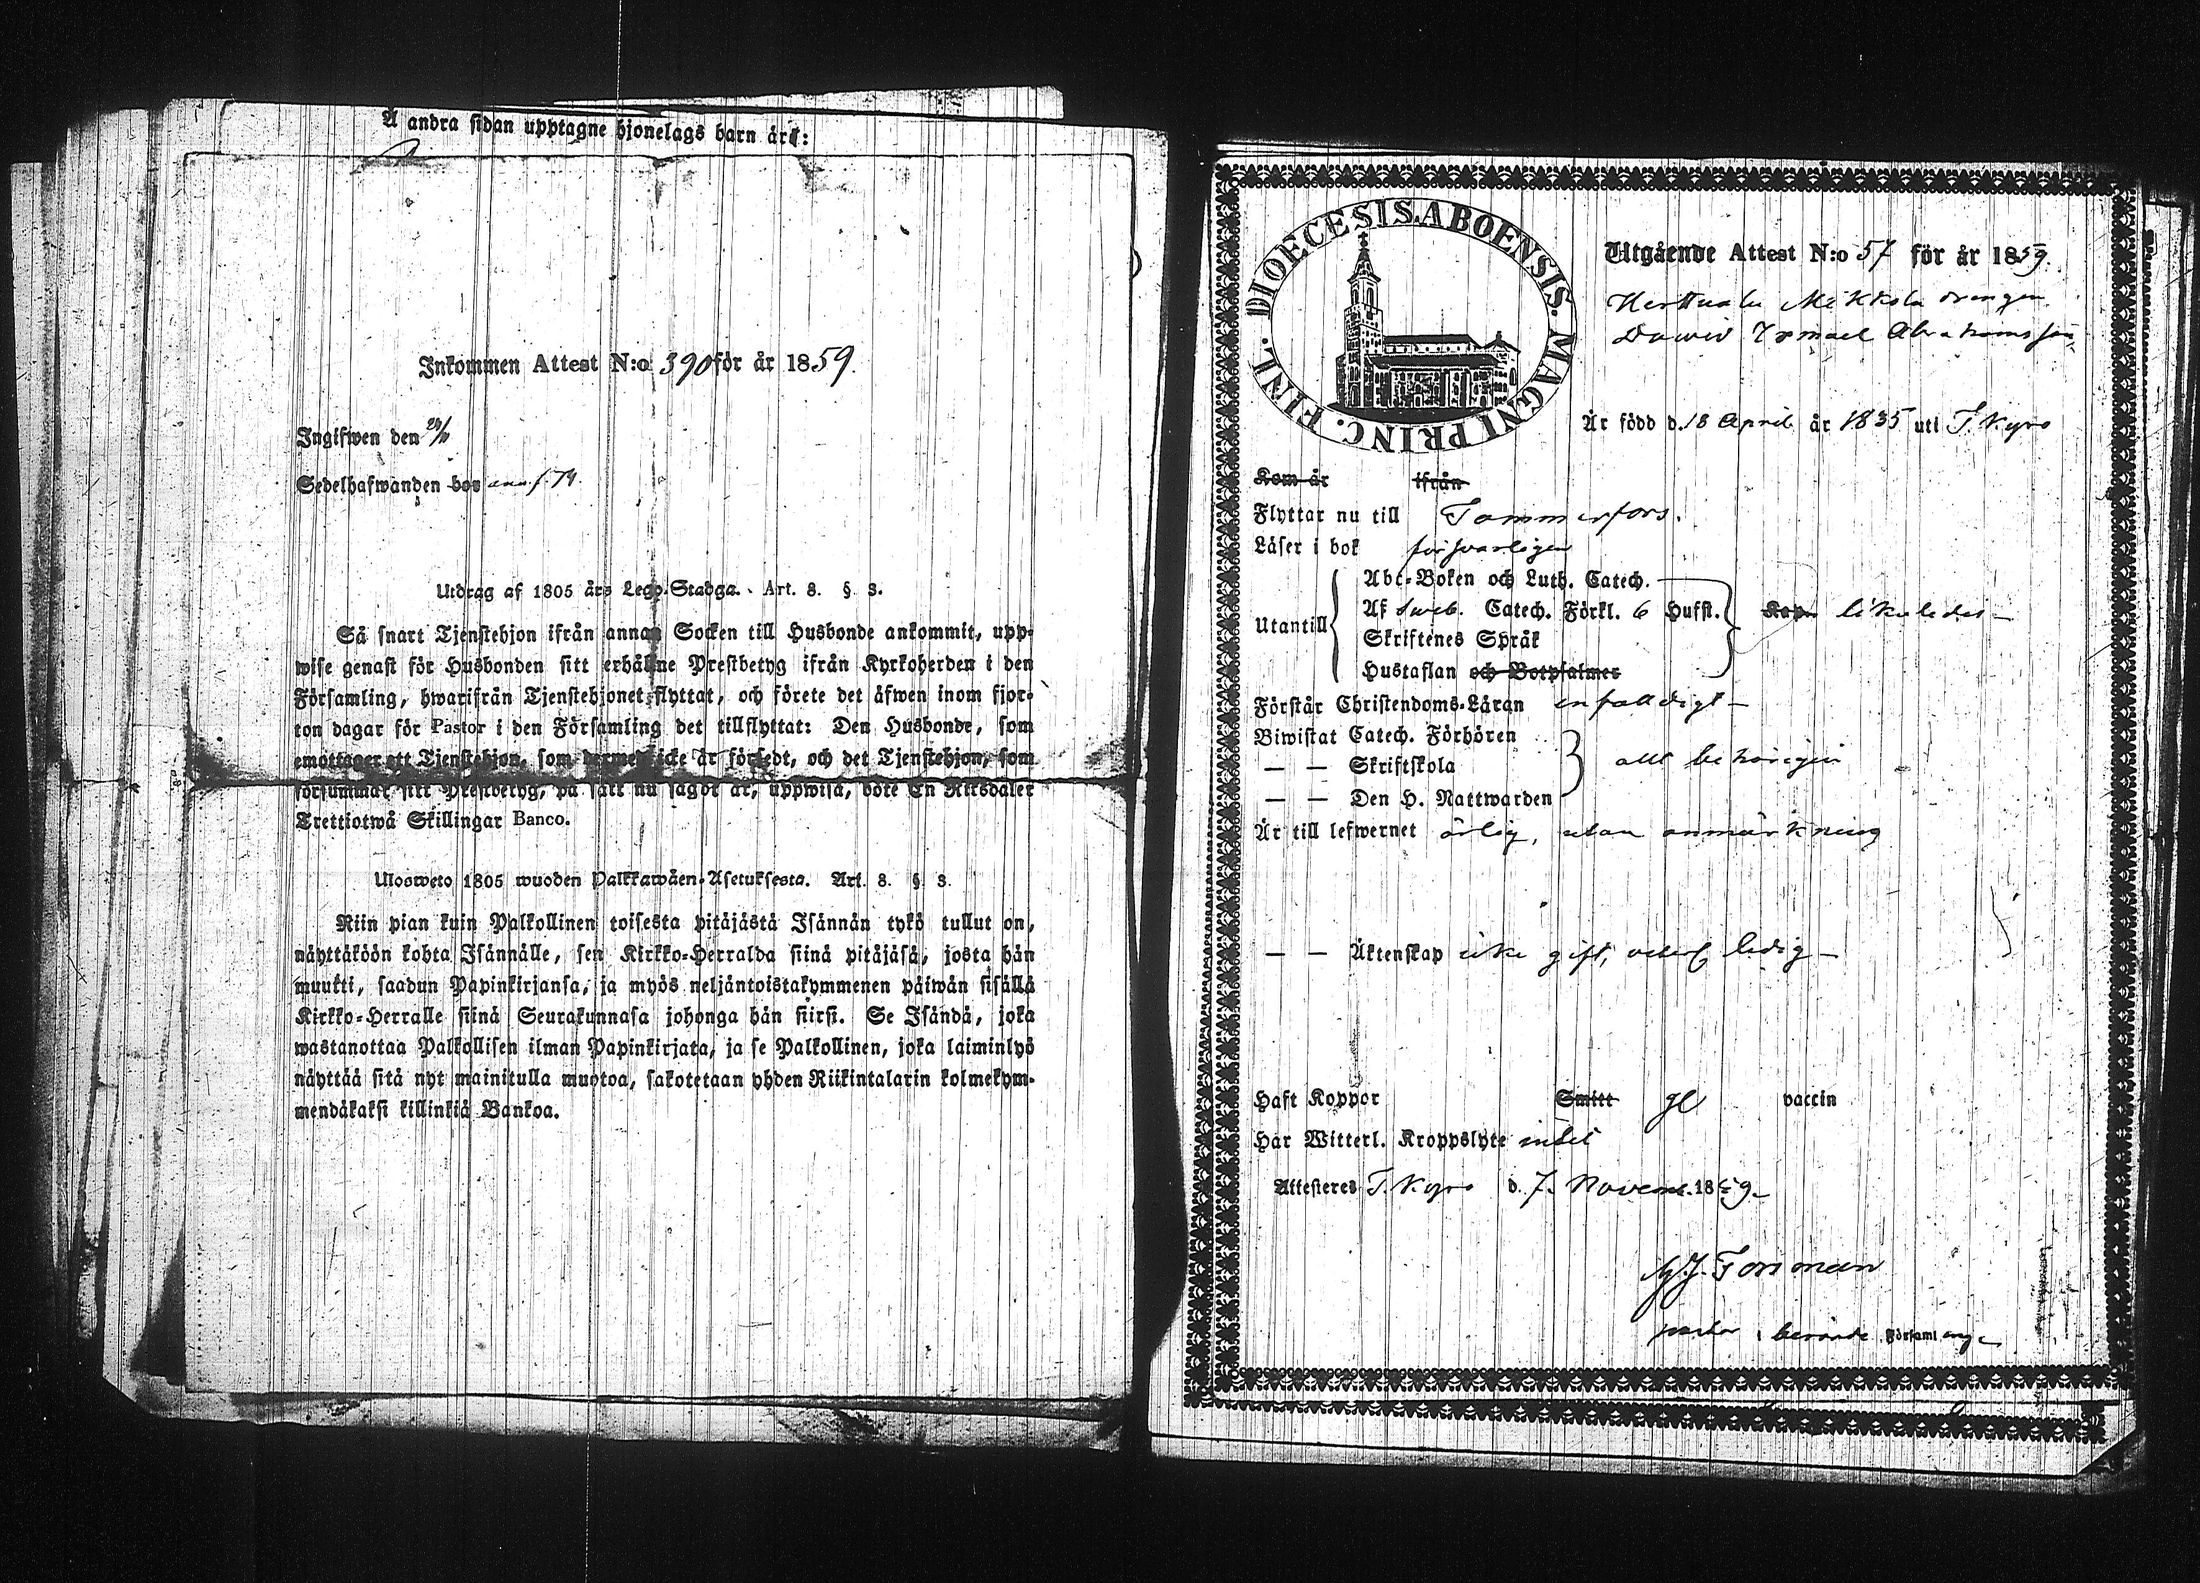 Å andra sidan upptagne hjonelags barn äro:
Inkommen Attest N:o 390 för år 1859.
Ingifwen den
Sedelhafwanden bor ann. f. 74.
Utdrag af 1805 års Lego-Stadga. Art. 8. § 3.
Så snart Tjenstehjon ifrån annan Socken till Husbonde ankommit, upp-
wise genast för Husbonden sitt erhållne Prestbetyg ifrån Kyrkoherden i den
Församling, hwarifrån Tjenstehjonet flyttat, och förete det äfwen inom fjor-
ton dagar för Pastor i den Församling det tillflyttat: Den Husbonde, som
emottager ett Tjenstehjon, som dermed icke är försedt, och det Tjenstehjon, som
försummar sitt Prestbetyg, på sätt nu sagdt är, uppwisa, böte En Riksdaler
Trettiotwå Skillingar Banco.
Ulosweto 1805 wuoden Palkkawäen-Asetuksesta. Art. 8. § 3.
Niin pian kuin Palkollinen toisesta pitäjästä Isännän tykö tullut on,
näyttäköön kohta Isännälle, sen Kirkko-Herralda siinä pitäjäsä, josta hän
muutti, saadun Papinkirjansa, ja myös neljäntoistakymmenen päiwän sisällä
Kirkko-Herralle siinä Seurakunnasa johonga hän siirsi. Se Isändä, joka
wastanottaa Palkollisen ilman Papinkirjata, ja se Palkollinen, joka laiminlyö
näyttää sitä nyt mainitulla muotoa, sakotetaan yhden Riikintalarin kolmekym-
mendäkaksi killinkiä Bankoa.
DIOECESIS ABOENSIS. MAGNI PRINC. FINL.
Utgående Attest N:o 57 för år 1859.
Herttuala Mikkola drengen
Dawid Ismael Abrahamsson
Är född d. 18 April år 1835 uti T. Kyro
Kom år ifrån
Flyttar nu till Tammerfors.
Läser i bok försvarligen
Utantill
Abc-Boken och Luth. Catech.
Af Sweb. Catech. Förkl. 6 Hufst. Kap. likaledes
Skriftenes Språk
Hustaflan och Botpsalmer
Förstår Christendoms-Läran enfaldigt
Biwistat Catech. Förhören
— — Skriftskola allt behörigen
— — Den H. Nattwarden
Är till lefwernet ärlig, utan anmärkning
— — Äktenskap icke gift, utan ledig
Haft Koppor Smitt ge vaccin
Har Witterl. Kroppslyte intet
Attesteres T. Kyro d. 7. Novemb. 1859
Forsman
pastor i berörde Församling